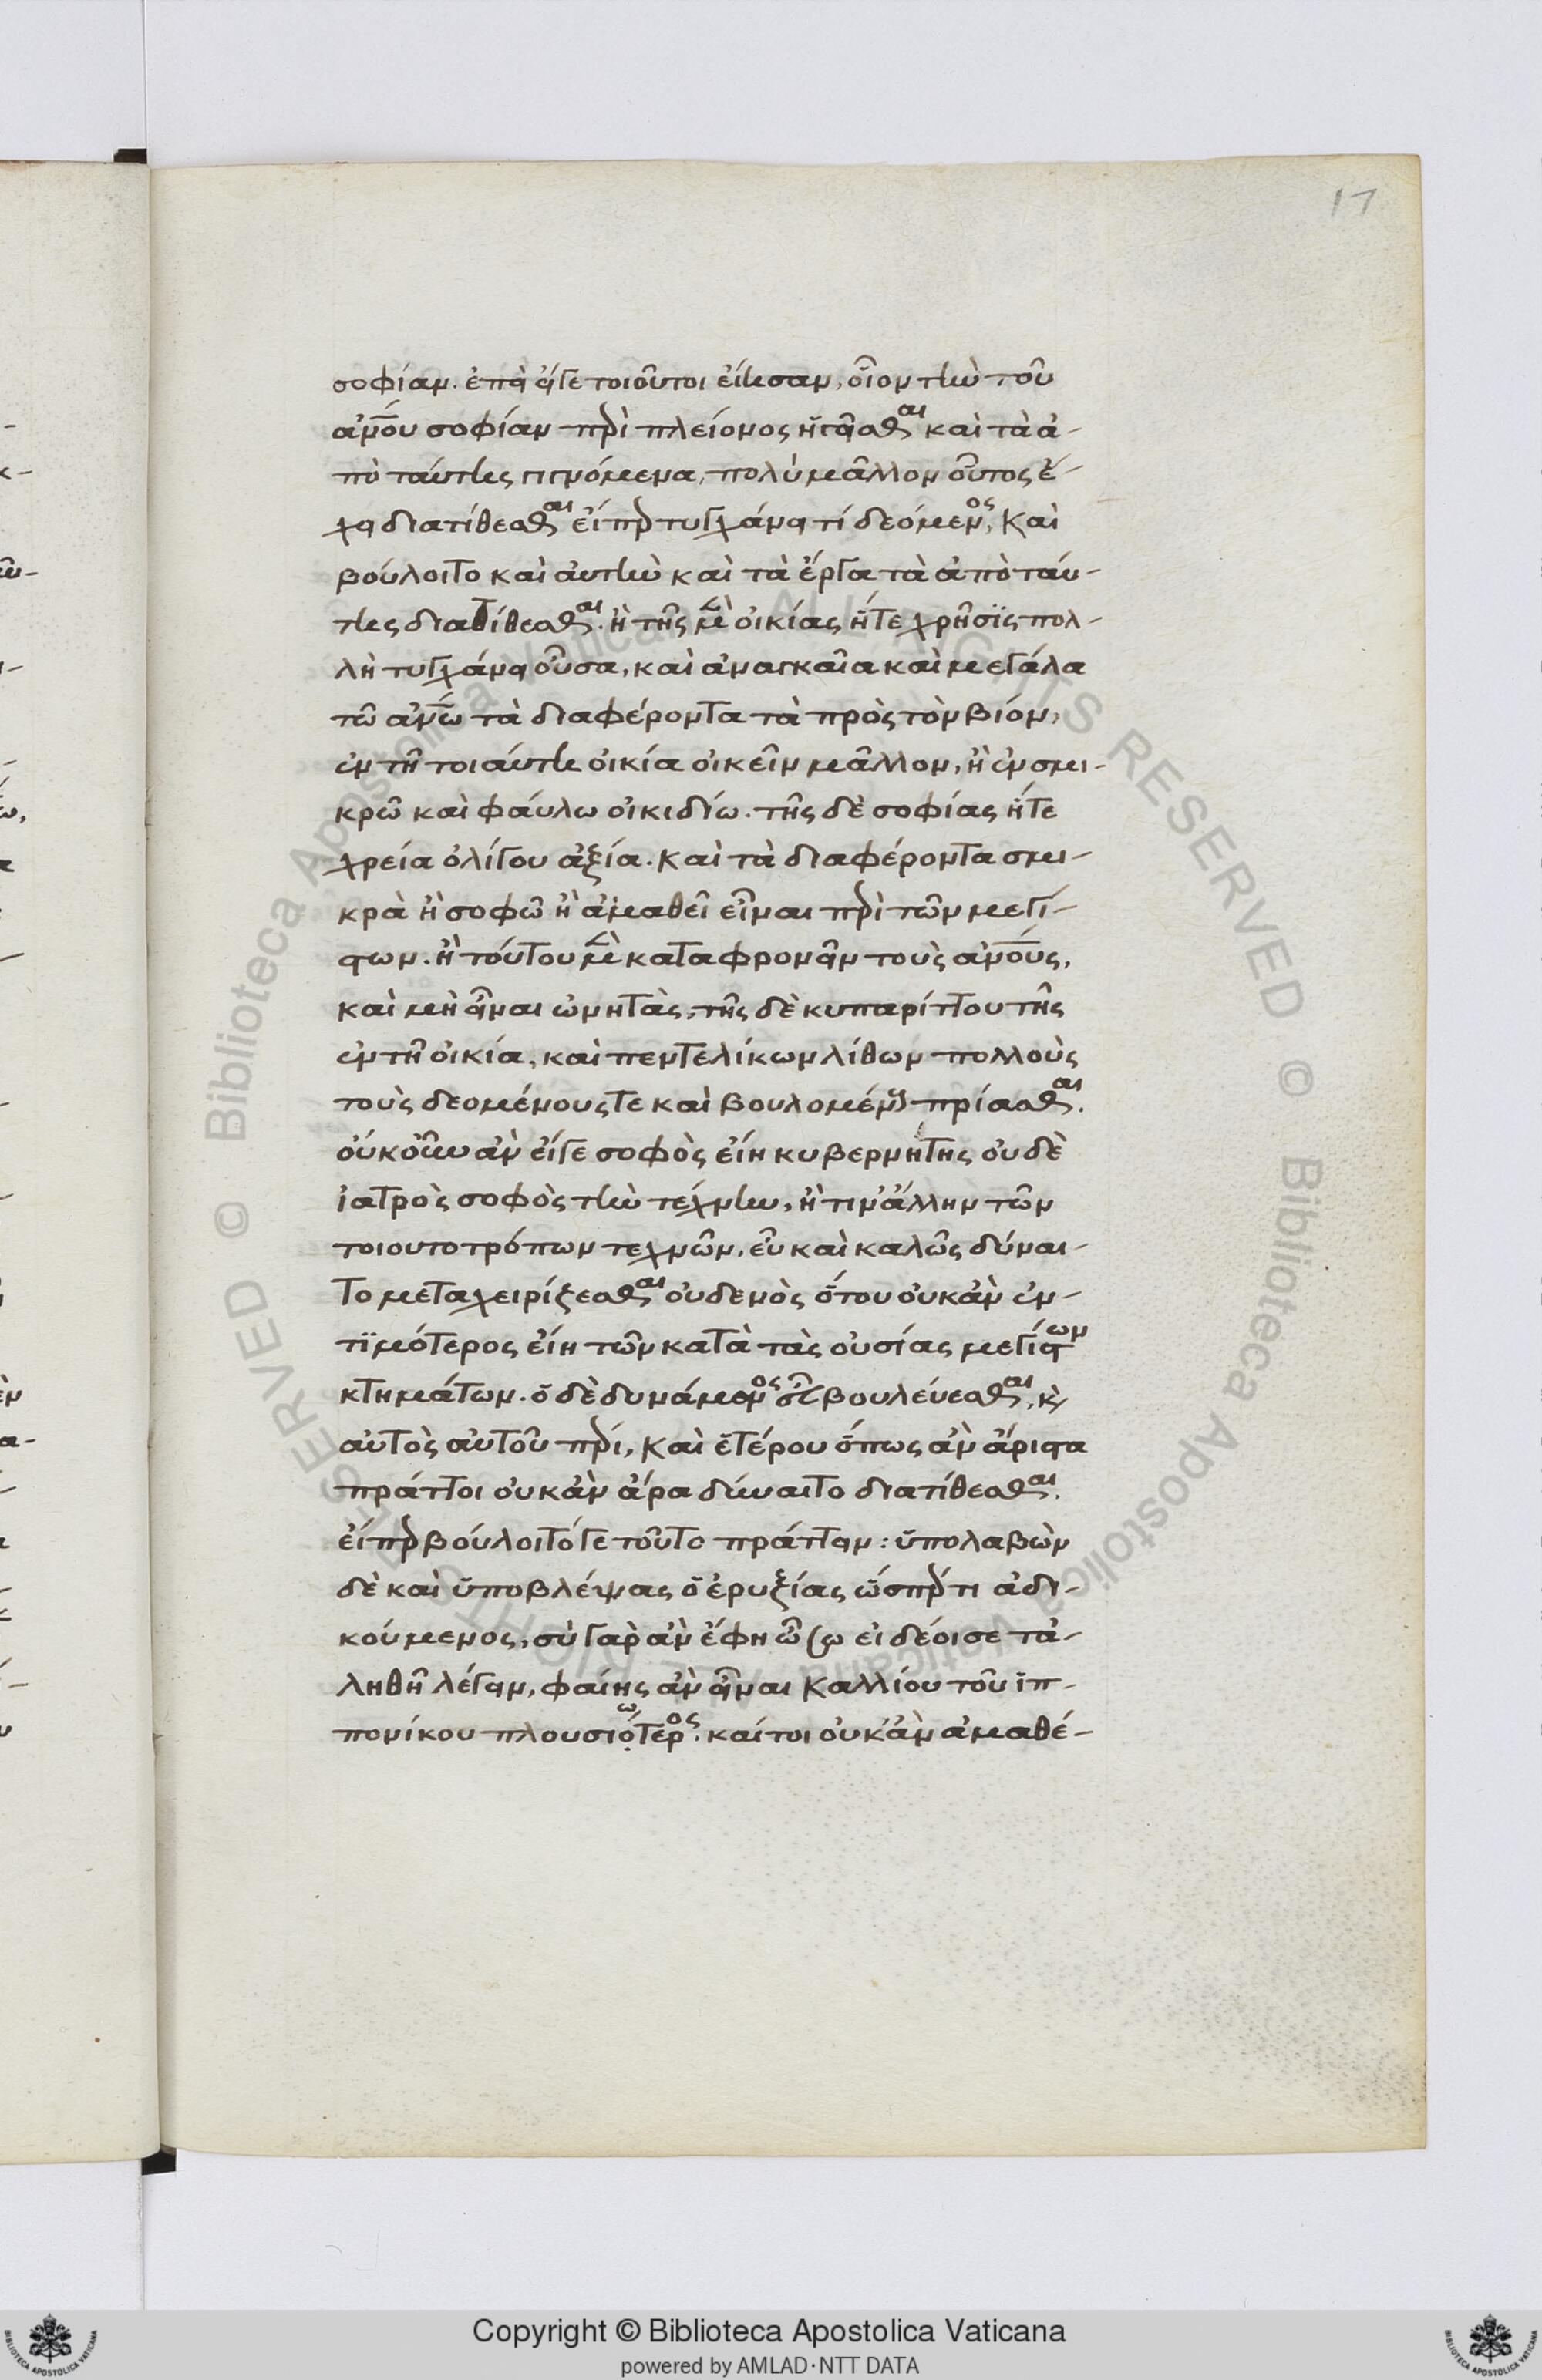 17
σοφίαν. ἐπεὶ εἴγε τοιοῦτοι εἴησαν, οἷον τὴν τοῦ
ἀν̅ου σοφίαν περὶ πλείονος ἡγεῖσθαι καὶ τὰ ἀ-
πὸ ταύτης γιγνόμενα, πολὺ μᾶλλον οὗτος ἔ-
χει διατίθεσθαι εἴπερ τυγχάνει τί δεόμενος, καὶ
βούλοιτο καὶ αὐτὴν καὶ τὰ ἔργα τὰ ἀπὸ ταύ-
της διατίθεσθαι. ἢ τῆς μὲν οἰκίας ἥτε χρῆσϊς πολ-
λὴ τυγχάνει οὖσα, καὶ ἀναγκαῖα καὶ μεγάλα
τῶ ἀν̅ω τὰ διαφέροντα τὰ πρὸς τὸν βιόν,
ἐν τῆ τοιαύτη οἰκία οἰκεῖν μᾶλλον, ἢ ἐν σμι-
κρῶ καὶ φαύλω οἰκιδίω. τῆς δὲ σοφίας ἥτε
χρεία ὀλίγου ἀξία. καὶ τὰ διαφέροντα σμι-
κρὰ ἢ σοφῶ ἢ ἀμαθεῖ εἶναι περὶ τῶν μεγί-
στων. ἢ τούτου μὲν καταφρονεῖν τοὺς ἀν̅ους,
καὶ μὴ εἶναι ὠνητὰς, τῆς δὲ κυπαρίττου τῆς
ἐν τῆ οἰκία, καὶ πεντελίκων λίθων πολλοὺς
τοὺς δεομένους τε καὶ βουλομένους πρίασθαι.
οὐκοῦν ἀν εἴγε σοφὸς εἴη κυβερνήτης οὐδὲ
ἰατρὸς σοφὸς τὴν τέχνην, ἢ τιν' ἄλλην τῶν
τοιουτοτρόπων τεχνῶν, εὖ καὶ καλῶς δύναι-
το μεταχειρίζεσθαι οὐδενὸς ὅτου οὐκ ἀν ἐν-
τϊμότερος εἴη τῶν κατὰ τὰς οὐσίας μεγίστων
κτημάτων. ὁ δὲ δυνάμενος εὖ βουλεύεσθαι, κ̀
αὐτὸς αὑτοῦ περι, καὶ ἑτέρου ὅπως ἀν ἄριστα
πράττοι οὐκ ἀν ἄρα δύναιτο διατίθεσθαι.
εἴπερ βούλοιτό γε τοῦτο πράττειν: ὑπολαβὼν
δὲ καὶ ὑποβλέψας ὁ ἐρυξίας ὥσπερ τι ἀδι-
κούμενος, σὺ γὰρ ἀν ἔφη ὦ σω εἰ δέοι σε τἀ-
ληθῆ λέγειν, φαίης ἀν εἶναι καλλίου τοῦ ἱπ-
πονίκου πλουσιώτερος. καίτοι οὐκ ἀν ἀμαθέ-
Copyright © Biblioteca Apostolica Vaticana
powered by AMLAD·NTT DATA